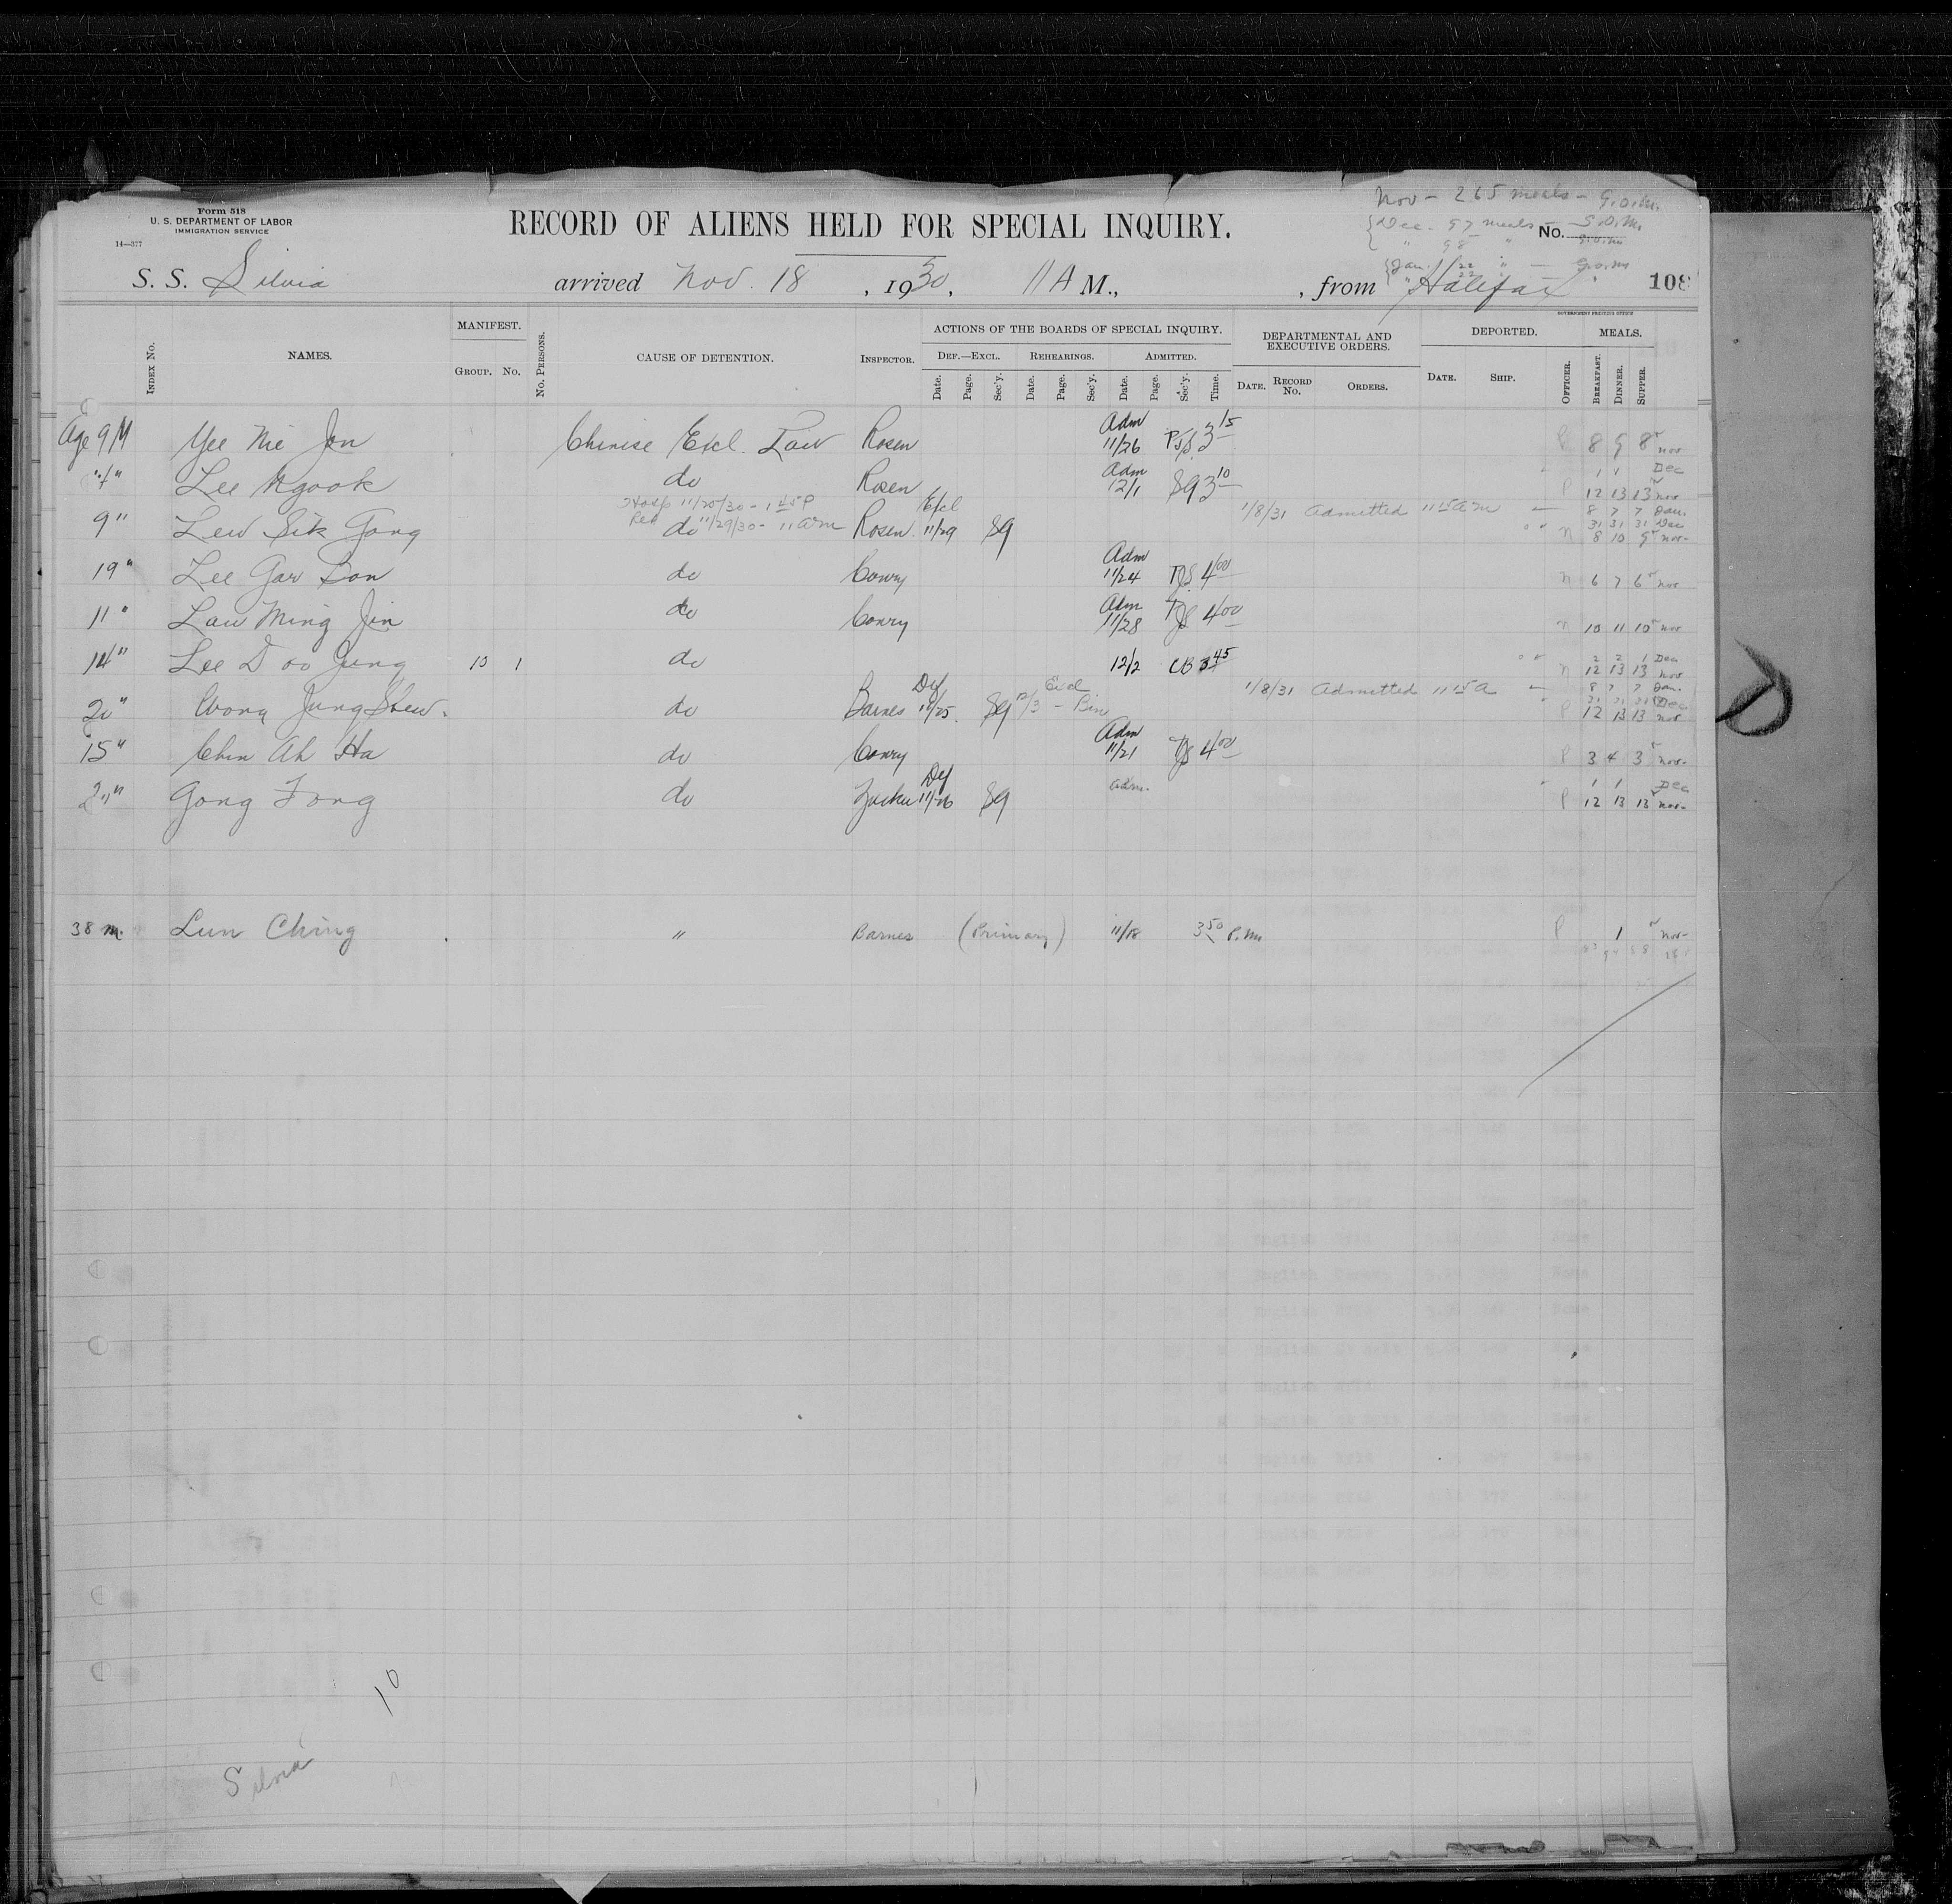 Form 518
U. S. DEPARTMENT OF LABOR
IMMIGRATION SERVICE
14—377
RECORD OF ALIENS HELD FOR SPECIAL INQUIRY.
Nov - 265 meals - G.O.M.
Dec. 97 meals - G.O.M.
" 98 " G.O.M.
No.
Jan. 22 " - G.O.M.
" 22 "
S. S. Silvia arrived Nov. 18, 1930, 11 A M., , from Halifax 108
GOVERNMENT PRINTING OFFICE
INDEX No. NAMES. MANIFEST. GROUP. No. No. PERSONS. CAUSE OF DETENTION. INSPECTOR. ACTIONS OF THE BOARDS OF SPECIAL INQUIRY. DEF.—EXCL. Date. Page. Sec'y. REHEARINGS. Date. Page. Sec'y. ADMITTED. Date. Page. Sec'y. Time. DEPARTMENTAL AND EXECUTIVE ORDERS. DATE. RECORD No. ORDERS. DEPORTED. DATE. SHIP. OFFICER. MEALS. BREAKFAST. DINNER. SUPPER.
Age 9 M Yee Nie Jon Chinise Excl. Law Rosen Adm 11/26 3 15 8 9 8 nov
Lee Ngook do Rosen Adm 12/1 Sg 3 10 P 1 1 Dec 12 13 13 nov
Hosp 11/20/30 - 1 45 P
9 " Lew Sik Gong do 11/29/30 - 11 am Rosen Excl 11/29 Sg 1/8/31 Admitted 11 15 am n 8 7 7 Jan. 31 31 31 Dec 8 10 9 nov-
19 " Lee Gar Bon do Conry Adm 11/24 4 00 n 6 7 6 nov
11 " Lau Ming Jin do Conry Adm 11/28 4 00 n 10 11 10 nov
14 " Lee Doo Jung 10 1 do 12/2 CB 3 45 n 2 2 1 Dec 12 13 13 nov
20 " Wong Jung Shew. do Barnes Def 11/25 Sg 12/3 Excl - Bin 1/8/31 Admitted 11 15 a P 8 7 7 Jan. 31 31 31 Dec 12 13 13 nov
15 " Chin Ah Ha do Conry Adm 11/21 4 00 P 3 4 3 nov-
Gong Fong do Def 11/26 Sg adm. P 1 1 Dec 12 13 13 nov-
38 m. Lun Ching " Barnes (Primary) 11/18 3 50 P.m P 1 nov-
10
Silvia